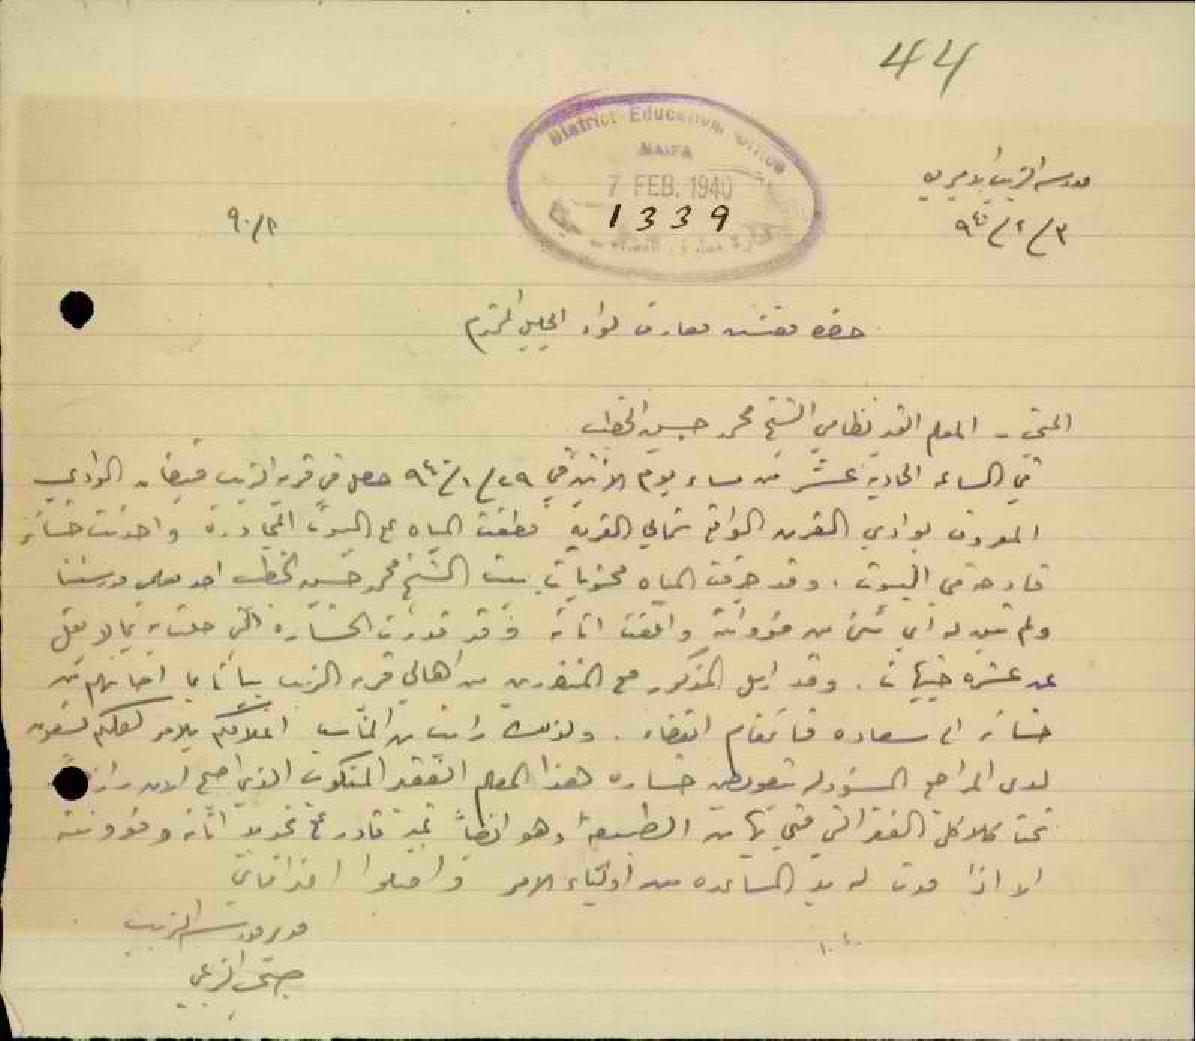 44
District Education Office
HAIFA
7 FEB. 1940
1339
مدرسة الزيب الاميرية
٣/٢/٩٤٠
٩٠/٢
حضرة مفتش معارف لواء الجليل المحترم
المعلم الشيخ محمد حسين الخطيب
في الساعة الحادية عشر من مساء يوم الاثنين في ٢٩/١/٩٤٠ حصل في قرية الزيب فيضان الوادي
المعروف بوادي القرن الواقع شمالي القرية فطغت المياه على البيوت المجاورة واحدثت خسائر
فادحة في البيوت . وقد جرفت المياه محتويات بيت الشيخ محمد حسين الخطيب احد معلمي مدرستنا
ولم تبق له اي شيء من مؤونته واتلفت اثاثه وقد قدرت الخسارة التي حلت به بما لا يقل
عن عشرة جنيهات . وقد ارسل المذكور مع المتضررين من اهالي قرية الزيب بيانا بما اصابهم من
خسائر الى سعادة قائمقام القضاء . ولذلك رايت من المناسب اعلامكم بالامر لعلكم تسعون
لدى المراجع المسؤولة بتعويض خسارة هذا المعلم الفقير المنكوب الذي اصبح الان
تحت الفقر التي من الطبيعة وهو ايضا غير قادر على تجديد اثاثه ومؤونته
الا اذا مدت له يد المساعدة من أولياء الامر واقبلوا احتراماتي
مدير مدرسة الزيب